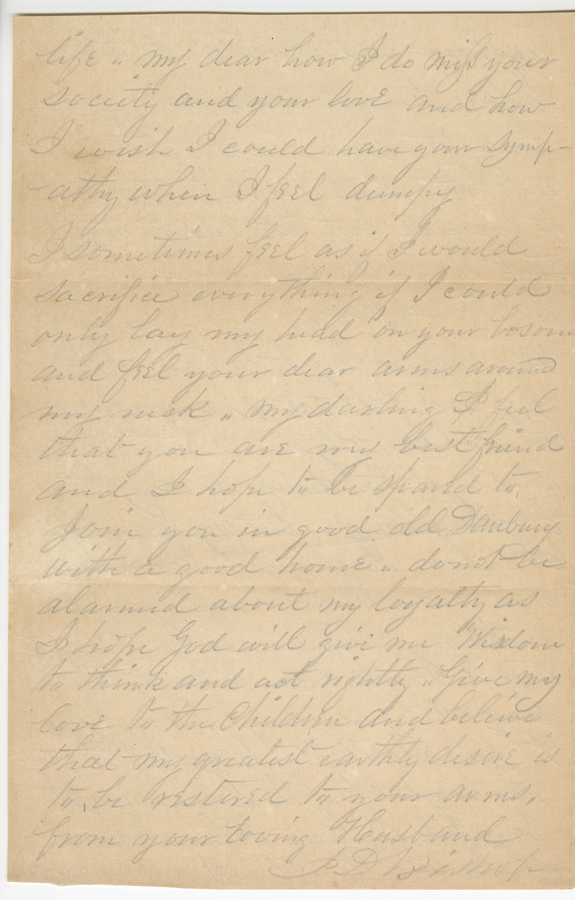 life " my dear how I do miss your
society and your love and how
I wish I could have your symp-
-athy when I feel dumpy
I sometimes feel as if I would
sacrifice everything if I could
only lay my head on your bosom
and feel your dear arms around
my neck " my darling I feel
that you are my best friend
and I hope to be spared to
Join you in good old Danbury
with a good home " do not be
alarmed about my loyalty as
I hope God will give me Wisdom
to think and act rightly " Give my
love to the Children and believe
that my greatest earthly desire is
to be restored to your arms.
from your Loving Husband
J D Bishop